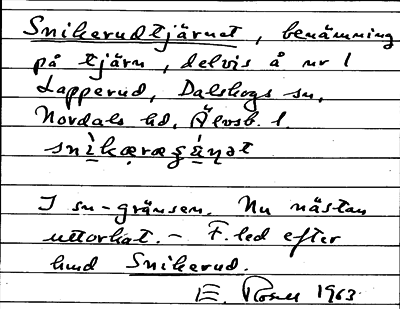 Snikerudtjärnet, benämning
på tjärn, delvis å nr 1
Lapperud, Dalskogs sn,
Nordals hd, Älvsb. l.
snìkæræʂä́ṇət
I sn-gränsen. Nu nästan
uttorkat. - F. led efter
hmd Snikerud.
E. Rosell 1963